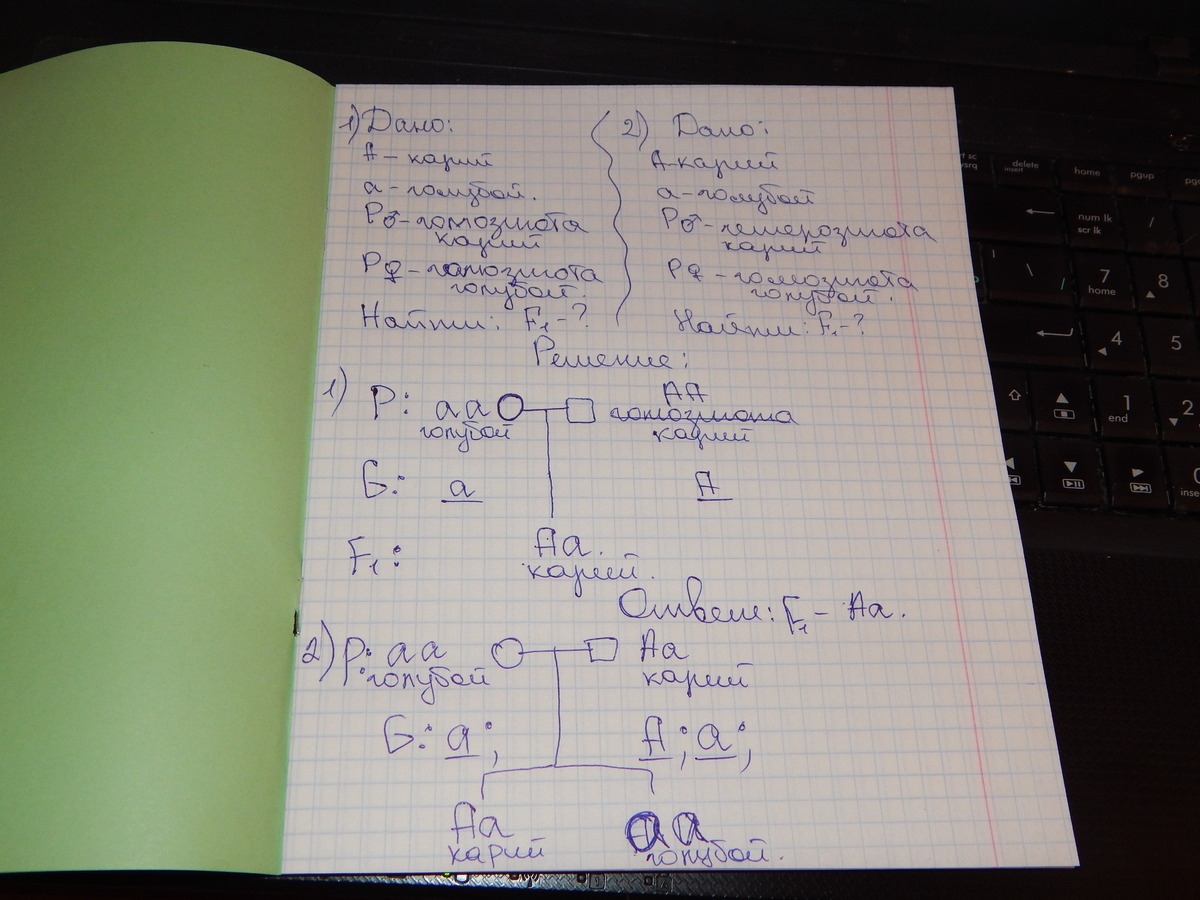 1) Дано:
А – карий
а – голубой.
Р♂ – гомозигота
карий
Р♀ – гомозигота
голубой.
Найти: F₁ – ?
2) Дано:
А – карий
а – голубой
Р♂ – гетерозигота
карий
Р♀ – гомозигота
голубой.
Найти: F₁ – ?
Решение:
1) Р: аа АА
голубой гомозигота
карий
G: а А
F₁: Аа.
карий.
Ответ: F₁ – Аа.
2) Р: аа Аа
голубой карий
G: а; А; а;
Аа аа
карий голубой.
delete
insert
home
pgup
num lk
scr lk
/
\
/
7
home
8
4
5
1
end
2